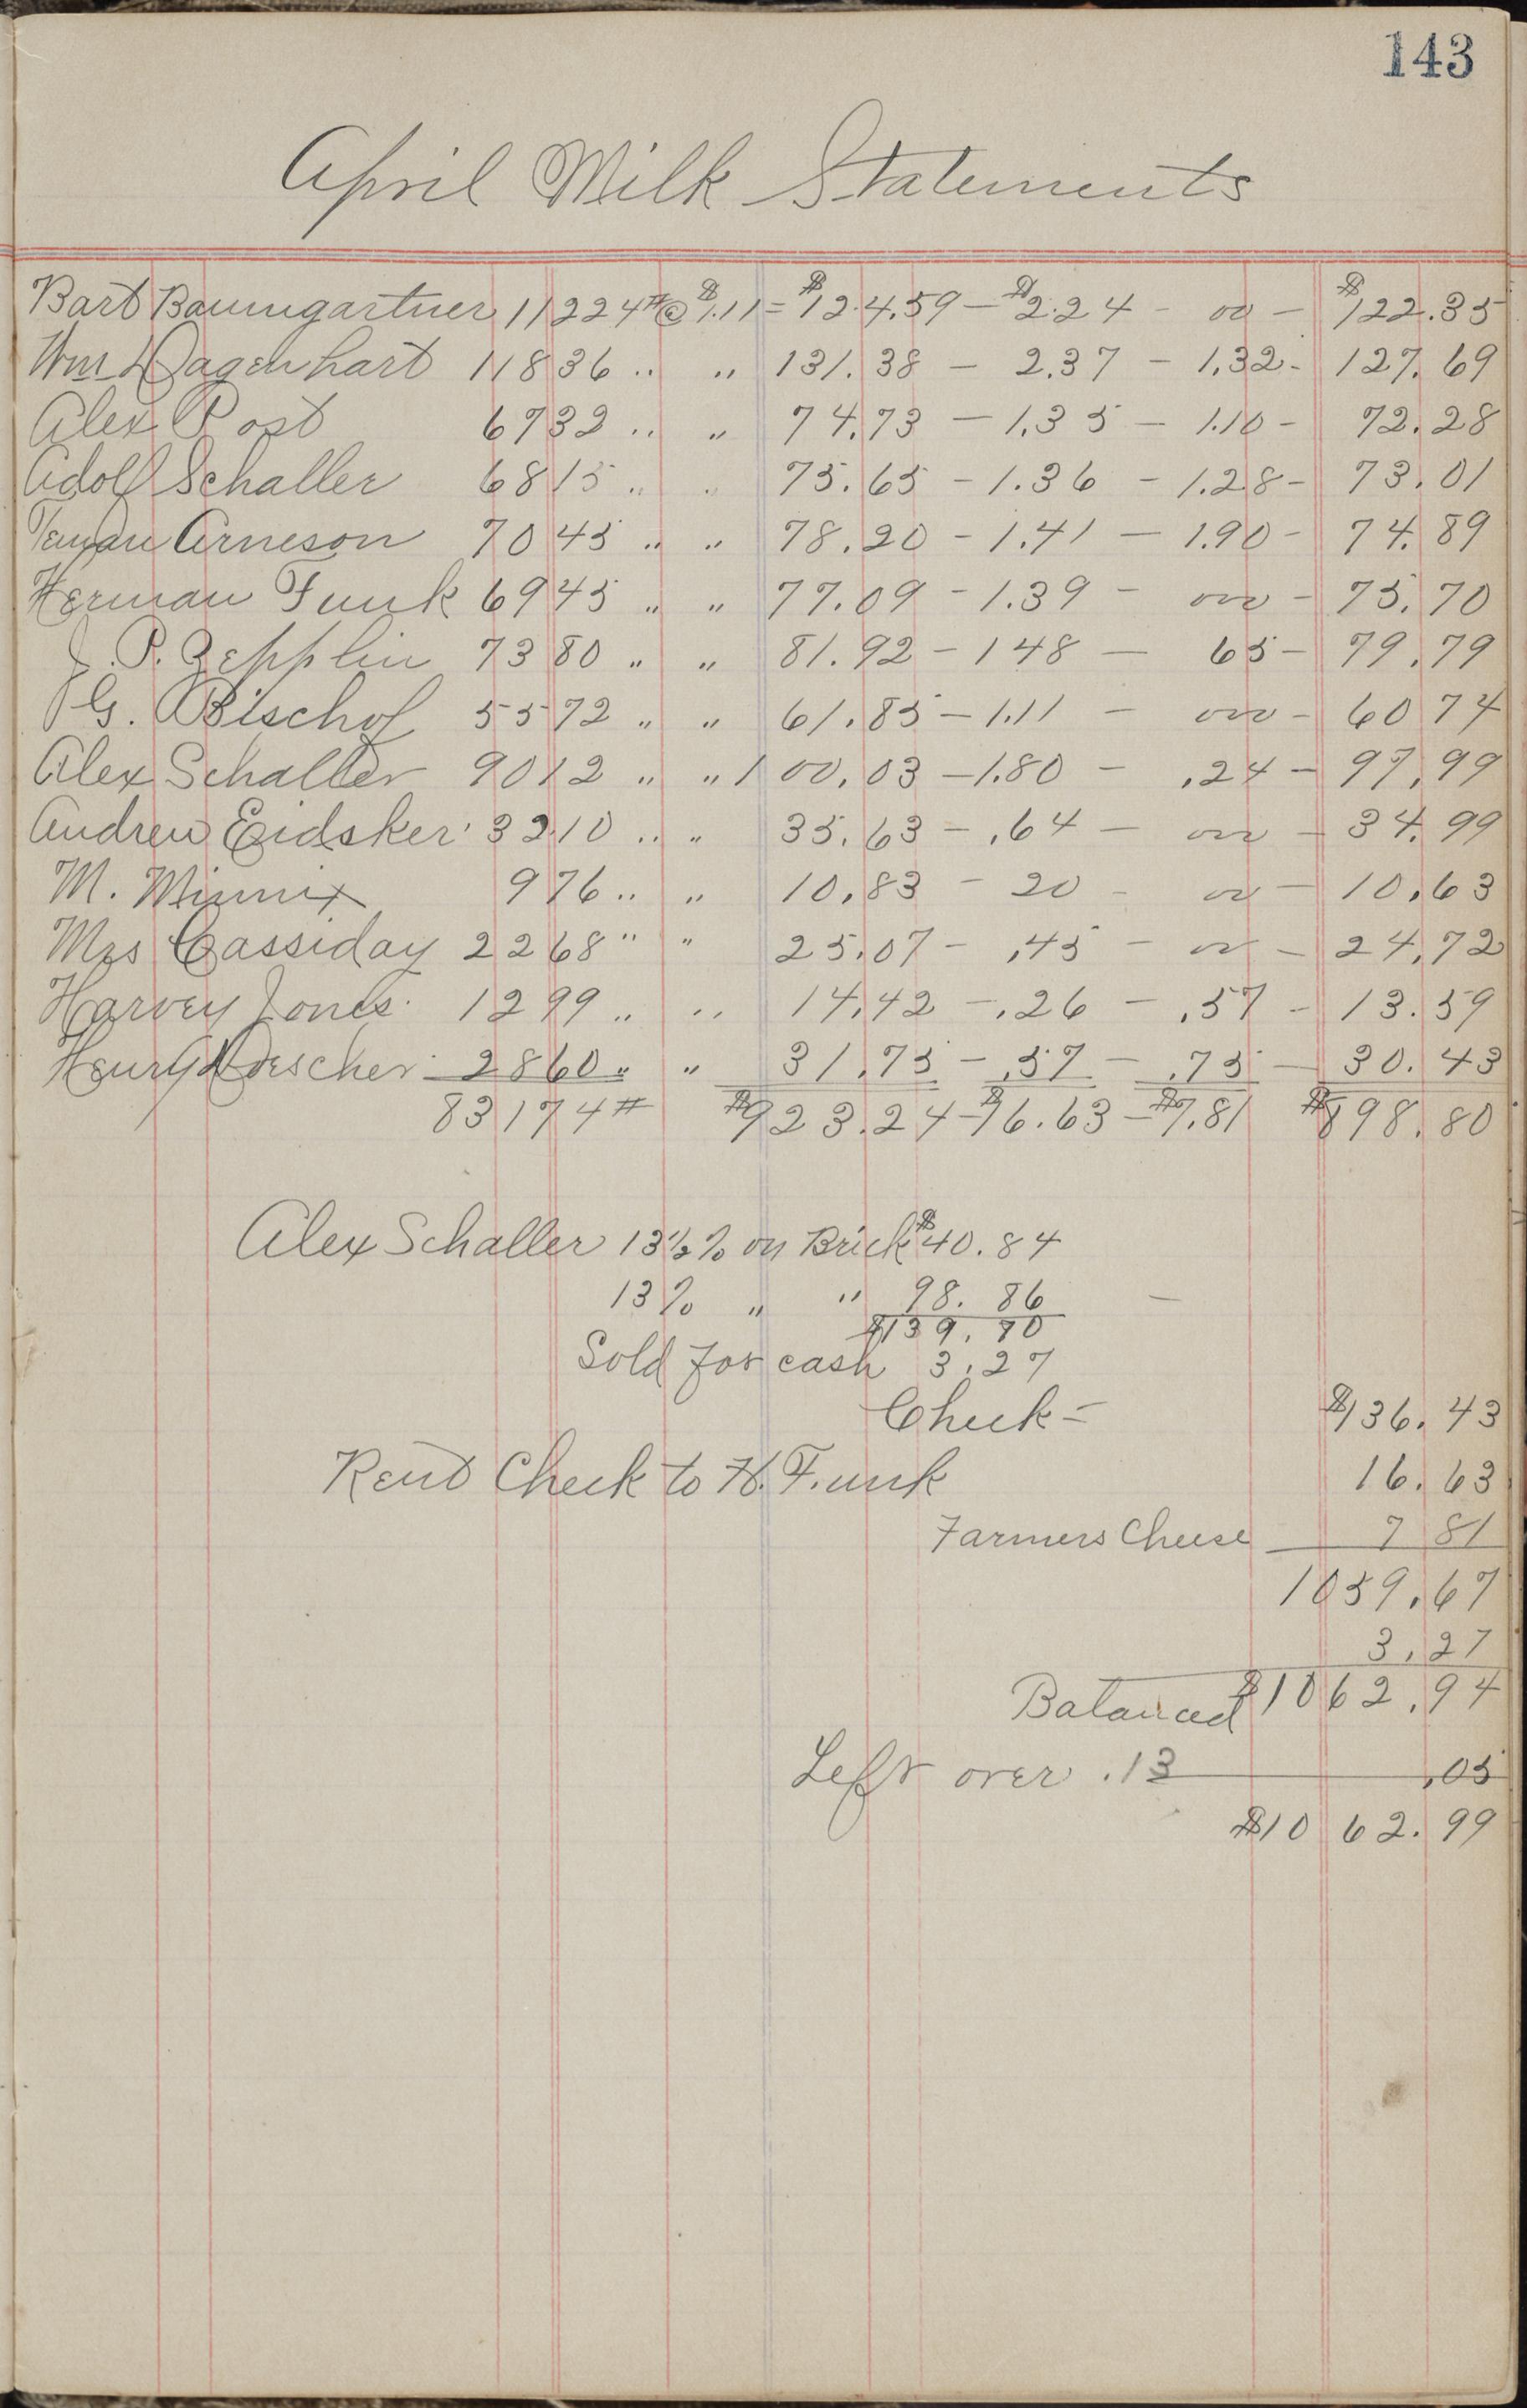 143
April Milk Statements
Bart Baumgartner 11224# @ $1.11 = $124.59 — $2.24 - 00 — $122.35
Wm Dagenhart 11836 .. „ 131.38 — 2.37 — 1.32 - 127.69
Alex Post 6732 .. „ 74.73 — 1.35 — 1.10 - 72.28
Adolf Schaller 6815 „ „ 75.65 - 1.36 - 1.28 - 73.01
Arneson 7045 „ „ 78.20 - 1.41 — 1.90 - 74.89
Herman Funk 6945 „ „ 77.09 - 1.39 - 000 - 75.70
J. P. Zepplin 7380 „ „ 81.92 - 148 — 65 - 79.79
G. Bischof 5572 „ „ 61.85 - 1.11 - 000 - 60 74
Alex Schaller 9012 „ „ 100.03 - 1.80 - .24 - 97.99
Andrew Eidsker 3210 .. „ 35.63 - .64 — 00 - 34.99
M. Minnix 976 .. „ 10.83 - 20 - 00 — 10.63
Mrs Cassiday 2268 " " 25.07 - .45 - 00 - 24.72
Harvey Jones 1299 „ .. 14.42 - .26 - .57 - 13.59
Henry Roescher 2860 „ „ 31.75 - .57 - .75 — 30.43
83174# $923.24 - $16.63 - $7.81 $898.80
Alex Schaller 13½% on Brick $40.84
13% „ " 98.86 —
$139.70
Sold for cash 3.27
Check = $136.43
Rent Check to H. Funk 16.63
Farmers Cheese 7 81
1059.67
3.27
Balanced $1062.94
Left over .13 .05
$1062.99